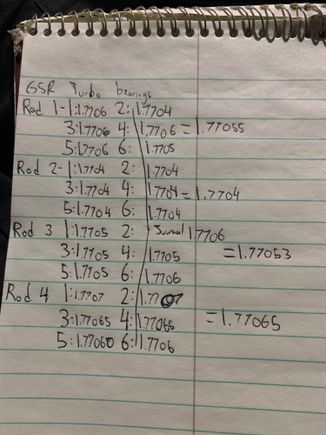 GSR Turbo bearings
Rod 1 - 1: 1.7706 2: 1.7704
3: 1.7706 4: 1.7706 = 1.77055
5: 1.7706 6: 1.7705
Rod 2 - 1: 1.7704 2: 1.7704
3: 1.7704 4: 1.7704 = 1.7704
5: 1.7704 6: 1.7704
Rod 3 1: 1.7705 2: Journal 1.7706
3: 1.7705 4: 1.7705 = 1.77053
5: 1.7705 6: 1.7706
Rod 4 1: 1.7707 2: 1.7707
3: 1.77065 4: 1.77065 = 1.77065
5: 1.77060 6: 1.7706